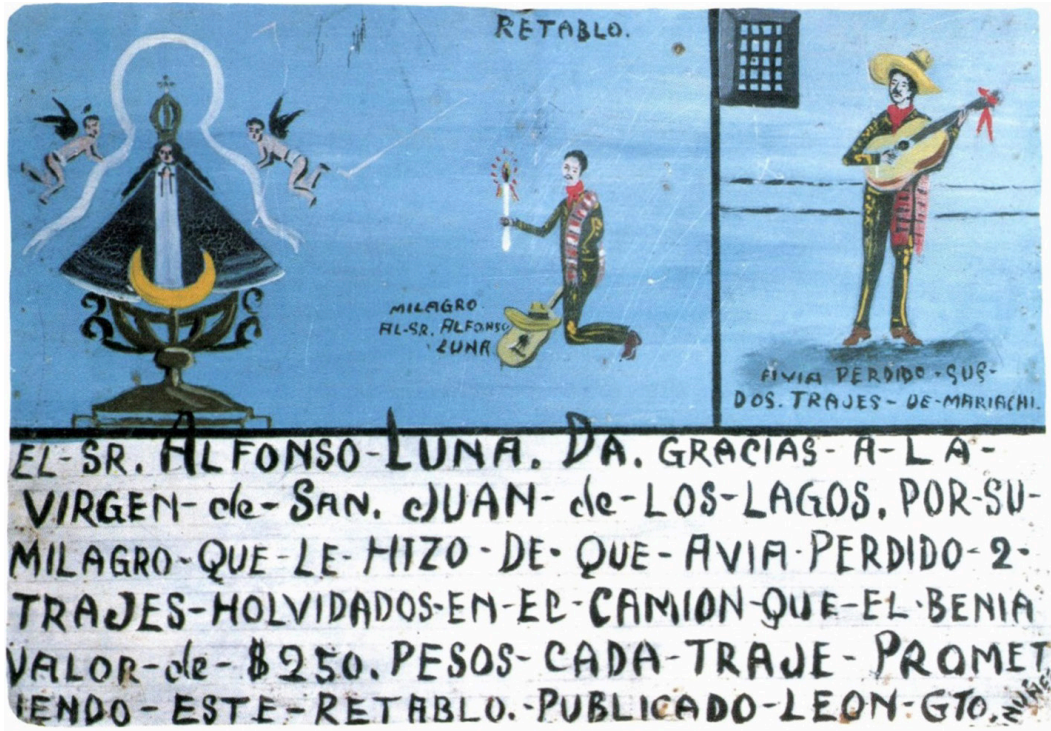 RETABLO.
MILAGRO.
AL-SR. ALFONSO
LUNA
AVIA PERDIDO-SUS-
DOS. TRAJES-DE-MARIACHI.
EL-SR. ALFONSO-LUNA. DA. GRACIAS-A-LA-
VIRGEN-de-SAN. JUAN-de-LOS-LAGOS. POR-SU-
MILAGRO-QUE-LE-HIZO-DE-QUE-AVIA-PERDIDO-2-
TRAJES-HOLVIDADOS-EN-EL-CAMION-QUE-EL-BENIA
VALOR-de-$250. PESOS-CADA-TRAJE-PROMET
IENDO-ESTE-RETABLO.-PUBLICADO-LEON-GTO.